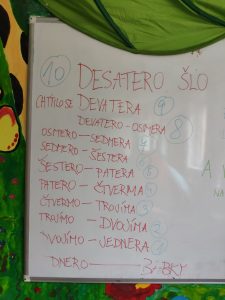 10 DESATERO ŠLO
CHTÍLO SE DEVATERA 9
DEVATERO - OSMERA 8
OSMERO - SEDMERA
SEDMERO - ŠESTERA
ŠESTERO - PATERA
PATERO - ČTVERMA
ČTVERMO - TROJÍMA 3
TROJÍMO - DVOJÍMA 2
DVOJÍMO - JEDNERA
DNERO - BABKY
A
NA